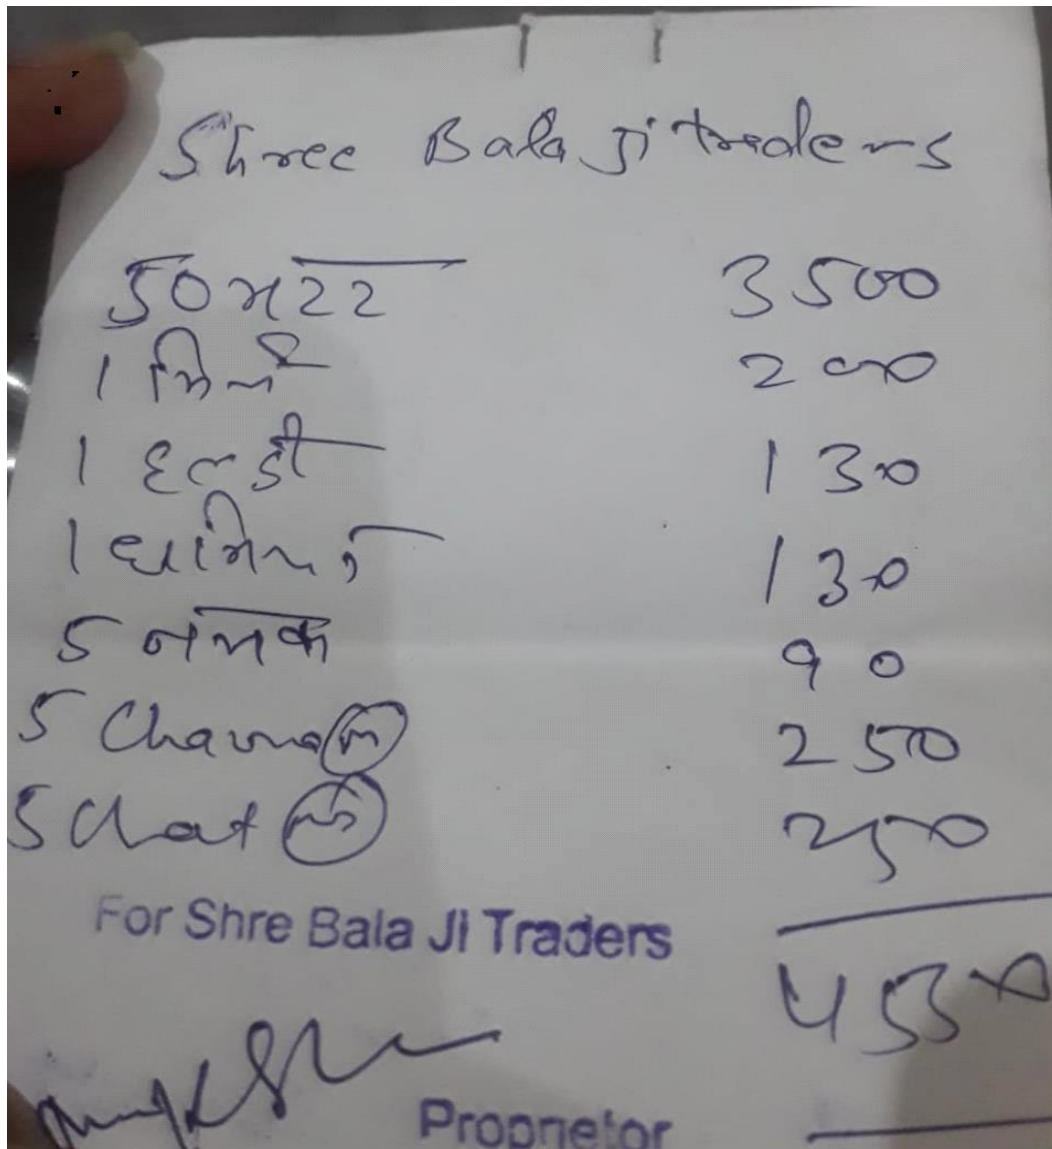 Shree Bala Ji traders
50 मटर 3500
1 मिर्च 200
1 हल्दी 130
1 धनिया 130
5 नमक 90
5 Chana 250
5 Chat 250
For Shre Bala Ji Traders
4550
Proprietor